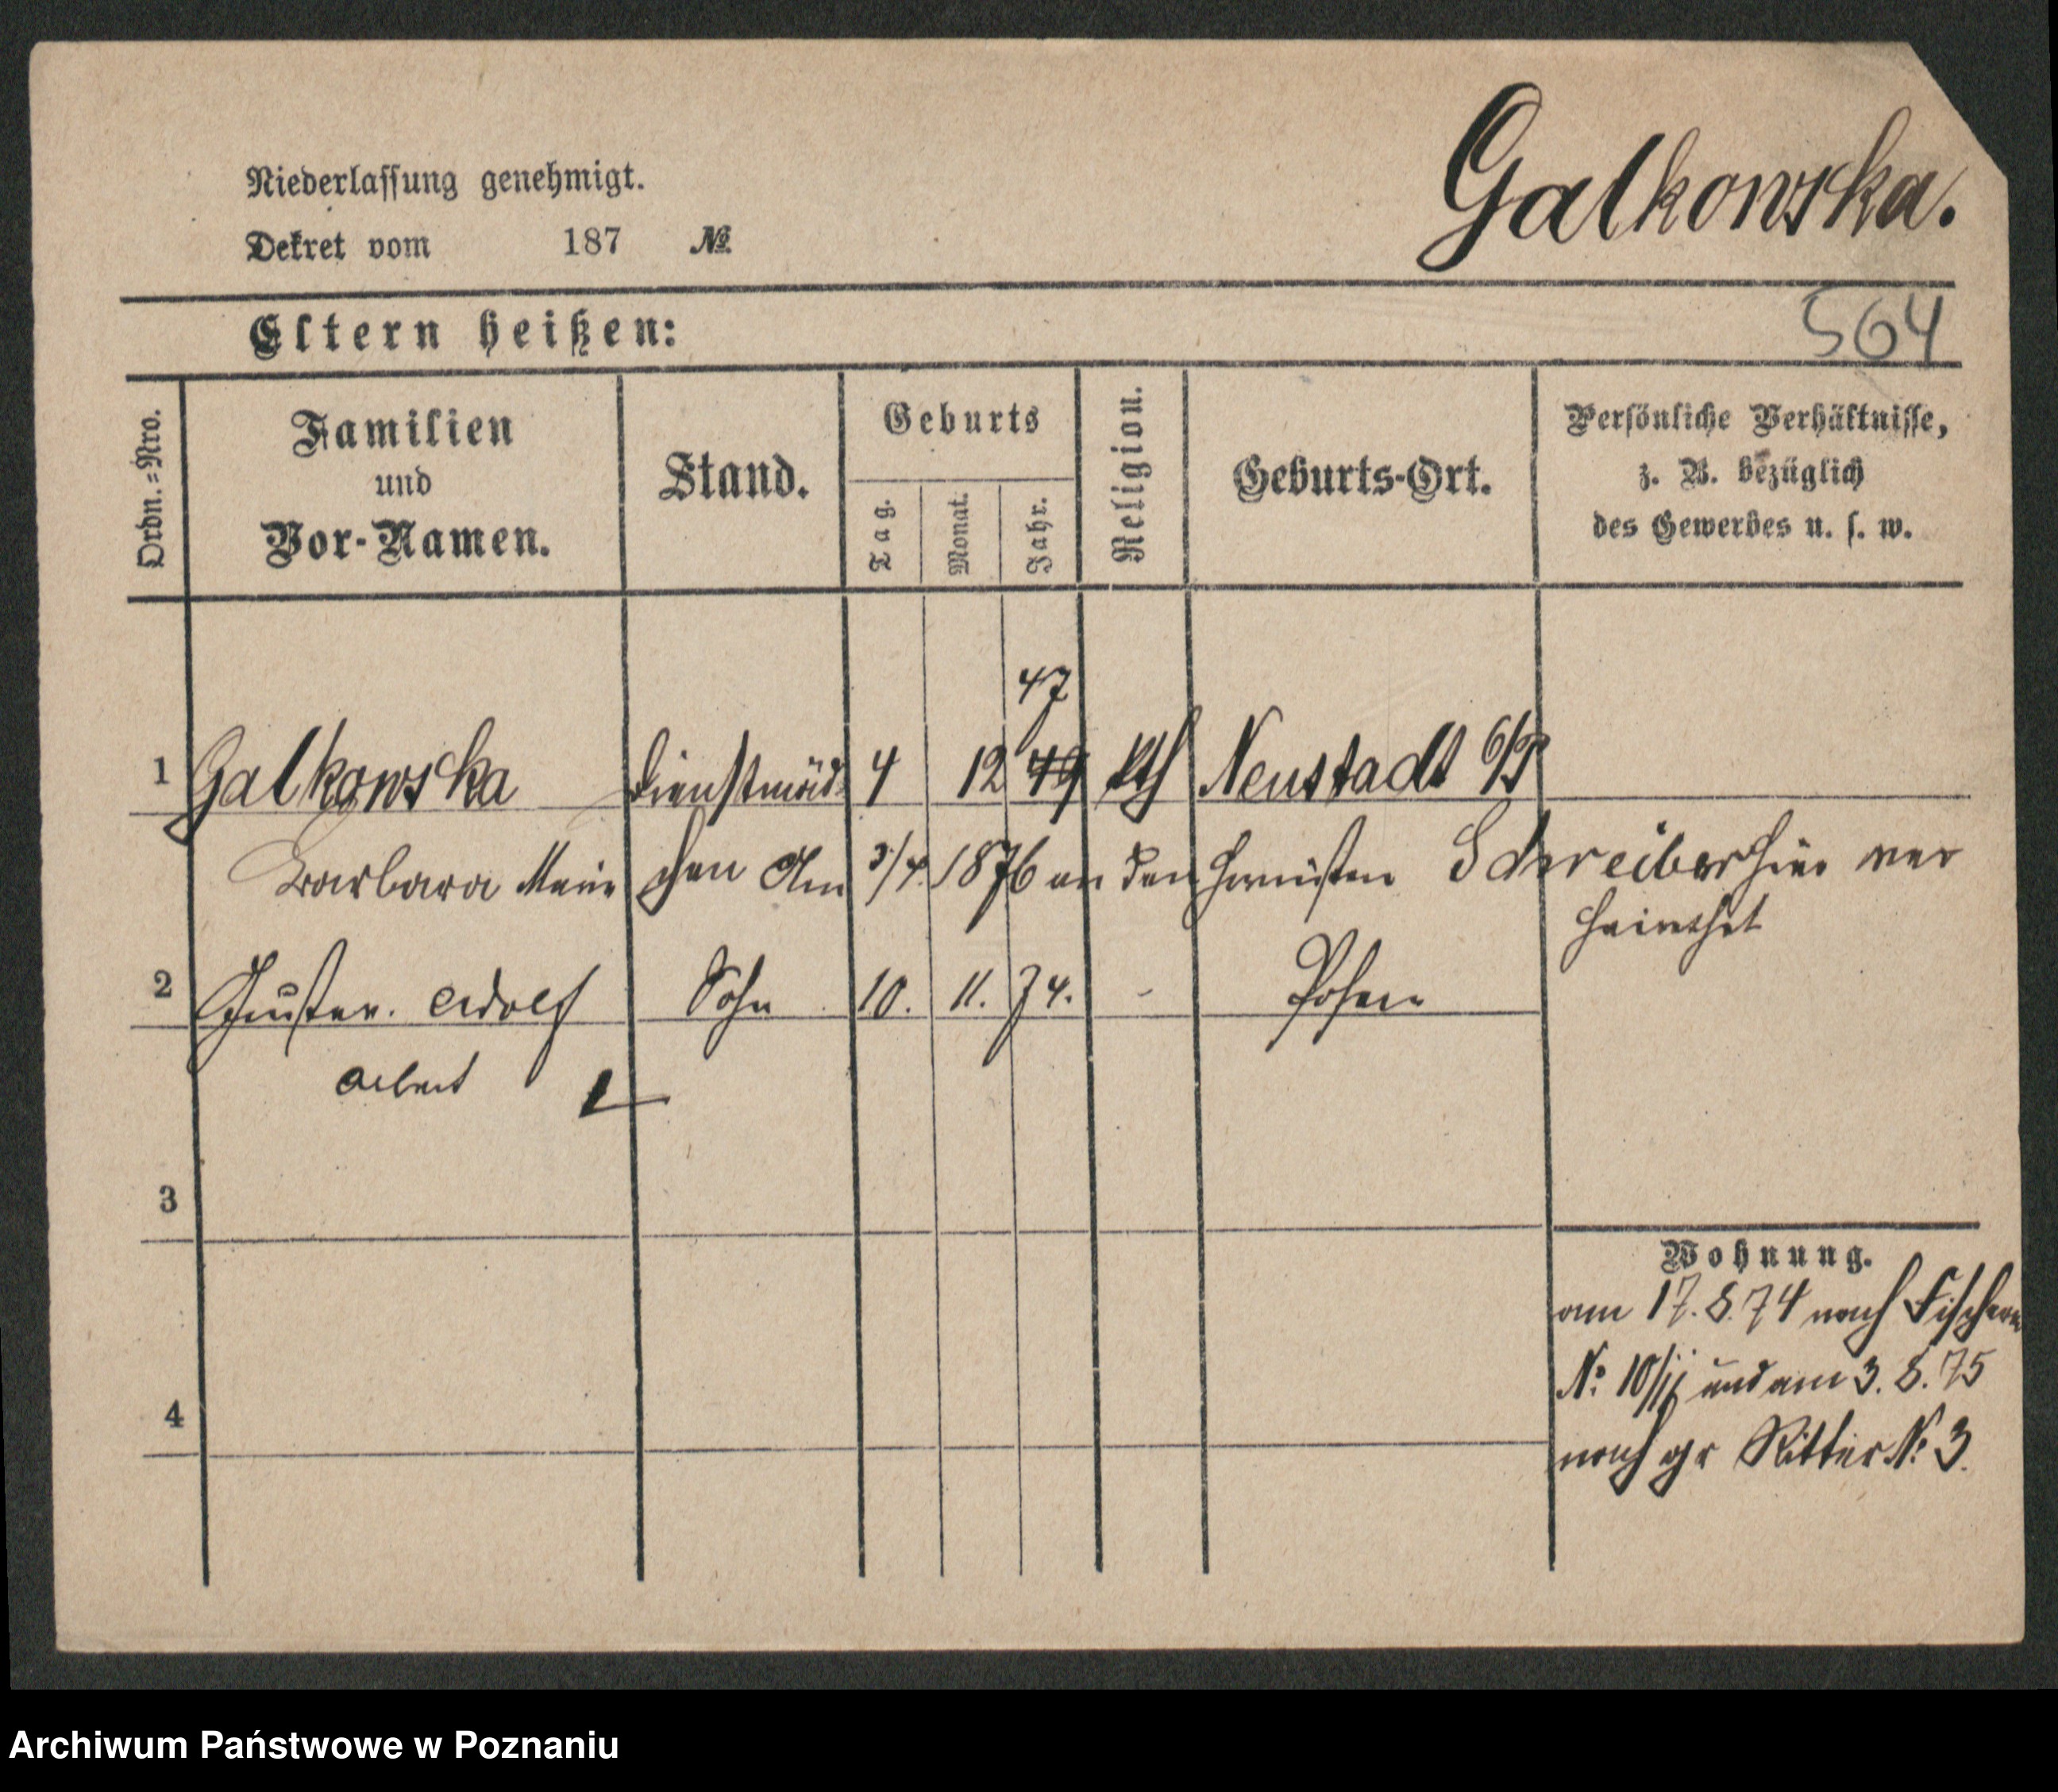 Galkowska.
Niederlassung genehmigt.
Dekret vom 187 №
564
Eltern heißen:
Ordn.=Nro.
Familien
und
Vor-Namen.
Stand.
Geburts
Tag.
Monat.
Jahr.
Religion.
Geburts-Ort.
Persönliche Verhältnisse,
z. B. bezüglich
des Gewerbes u. s. w.
47
1 Galkowska Dienstmäd 4 12 49 kth Neustadt b/P
Barbara Marie chen Am 3/4. 1876 an den Schreiber hier ver
heirathet
2 Gustav. Adolf Sohn 10. 11. 74. - Posen
Albert
3
Wohnung.
am 17. 8. 74 nach Fischerei
4
№ 10/11 und am 3. 8. 75
nach gr Ritter № 3.
Archiwum Państwowe w Poznaniu